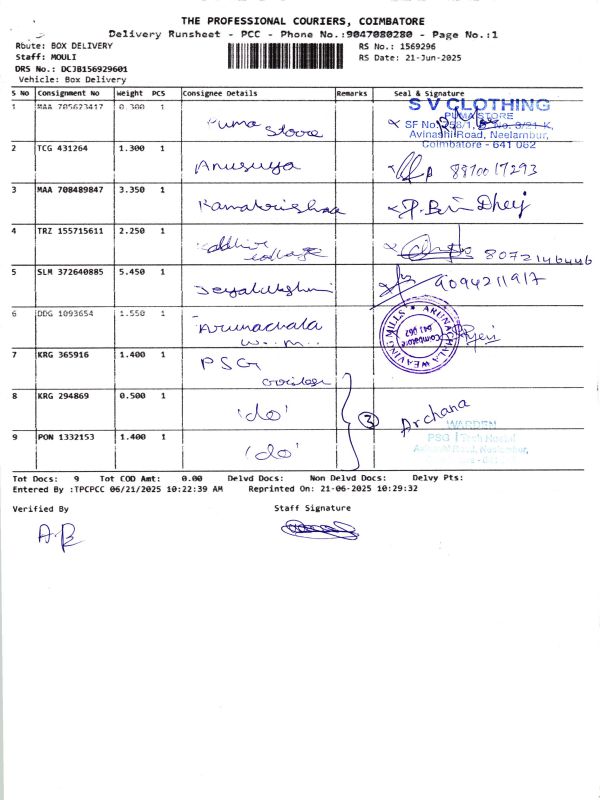 THE PROFESSIONAL COURIERS, COIMBATORE
Delivery Runsheet - PCC - Phone No.:9047080280 - Page No.:1
Route: BOX DELIVERY RS No.: 1569296
Staff: MOULI RS Date: 21-Jun-2025
DRS No.: DCJB156929601
Vehicle: Box Delivery
S No Consignment No Weight PCS Consignee Details Remarks Seal & Signature
1 MAA 705623417 0.300 1 Puma Stoore
S V CLOTHING
PUMA STORE
Avinashi Road, Neelambur,
Coimbatore - 641 062
2 TCG 431264 1.300 1 Anusuya 8870017293
3 MAA 708489847 3.350 1 Ramakrishnaa
4 TRZ 155715611 2.250 1 8072146446
5 SLM 372640885 5.450 1 Jeyalakshmi 9094211917
6 DDG 1093654 1.550 1 Arunachala W.. M..
ARUNACHALA WEAVING MILLS
Coimbatore 641 062
7 KRG 365916 1.400 1 PSG
8 KRG 294869 0.500 1 'do' 3 Archana
WARDEN
PSG iTech Hostel
9 PON 1332153 1.400 1 'do'
Tot Docs: 9 Tot COD Amt: 0.00 Delvd Docs: Non Delvd Docs: Delvy Pts:
Entered By :TPCPCC 06/21/2025 10:22:39 AM Reprinted On: 21-06-2025 10:29:32
Verified By Staff Signature